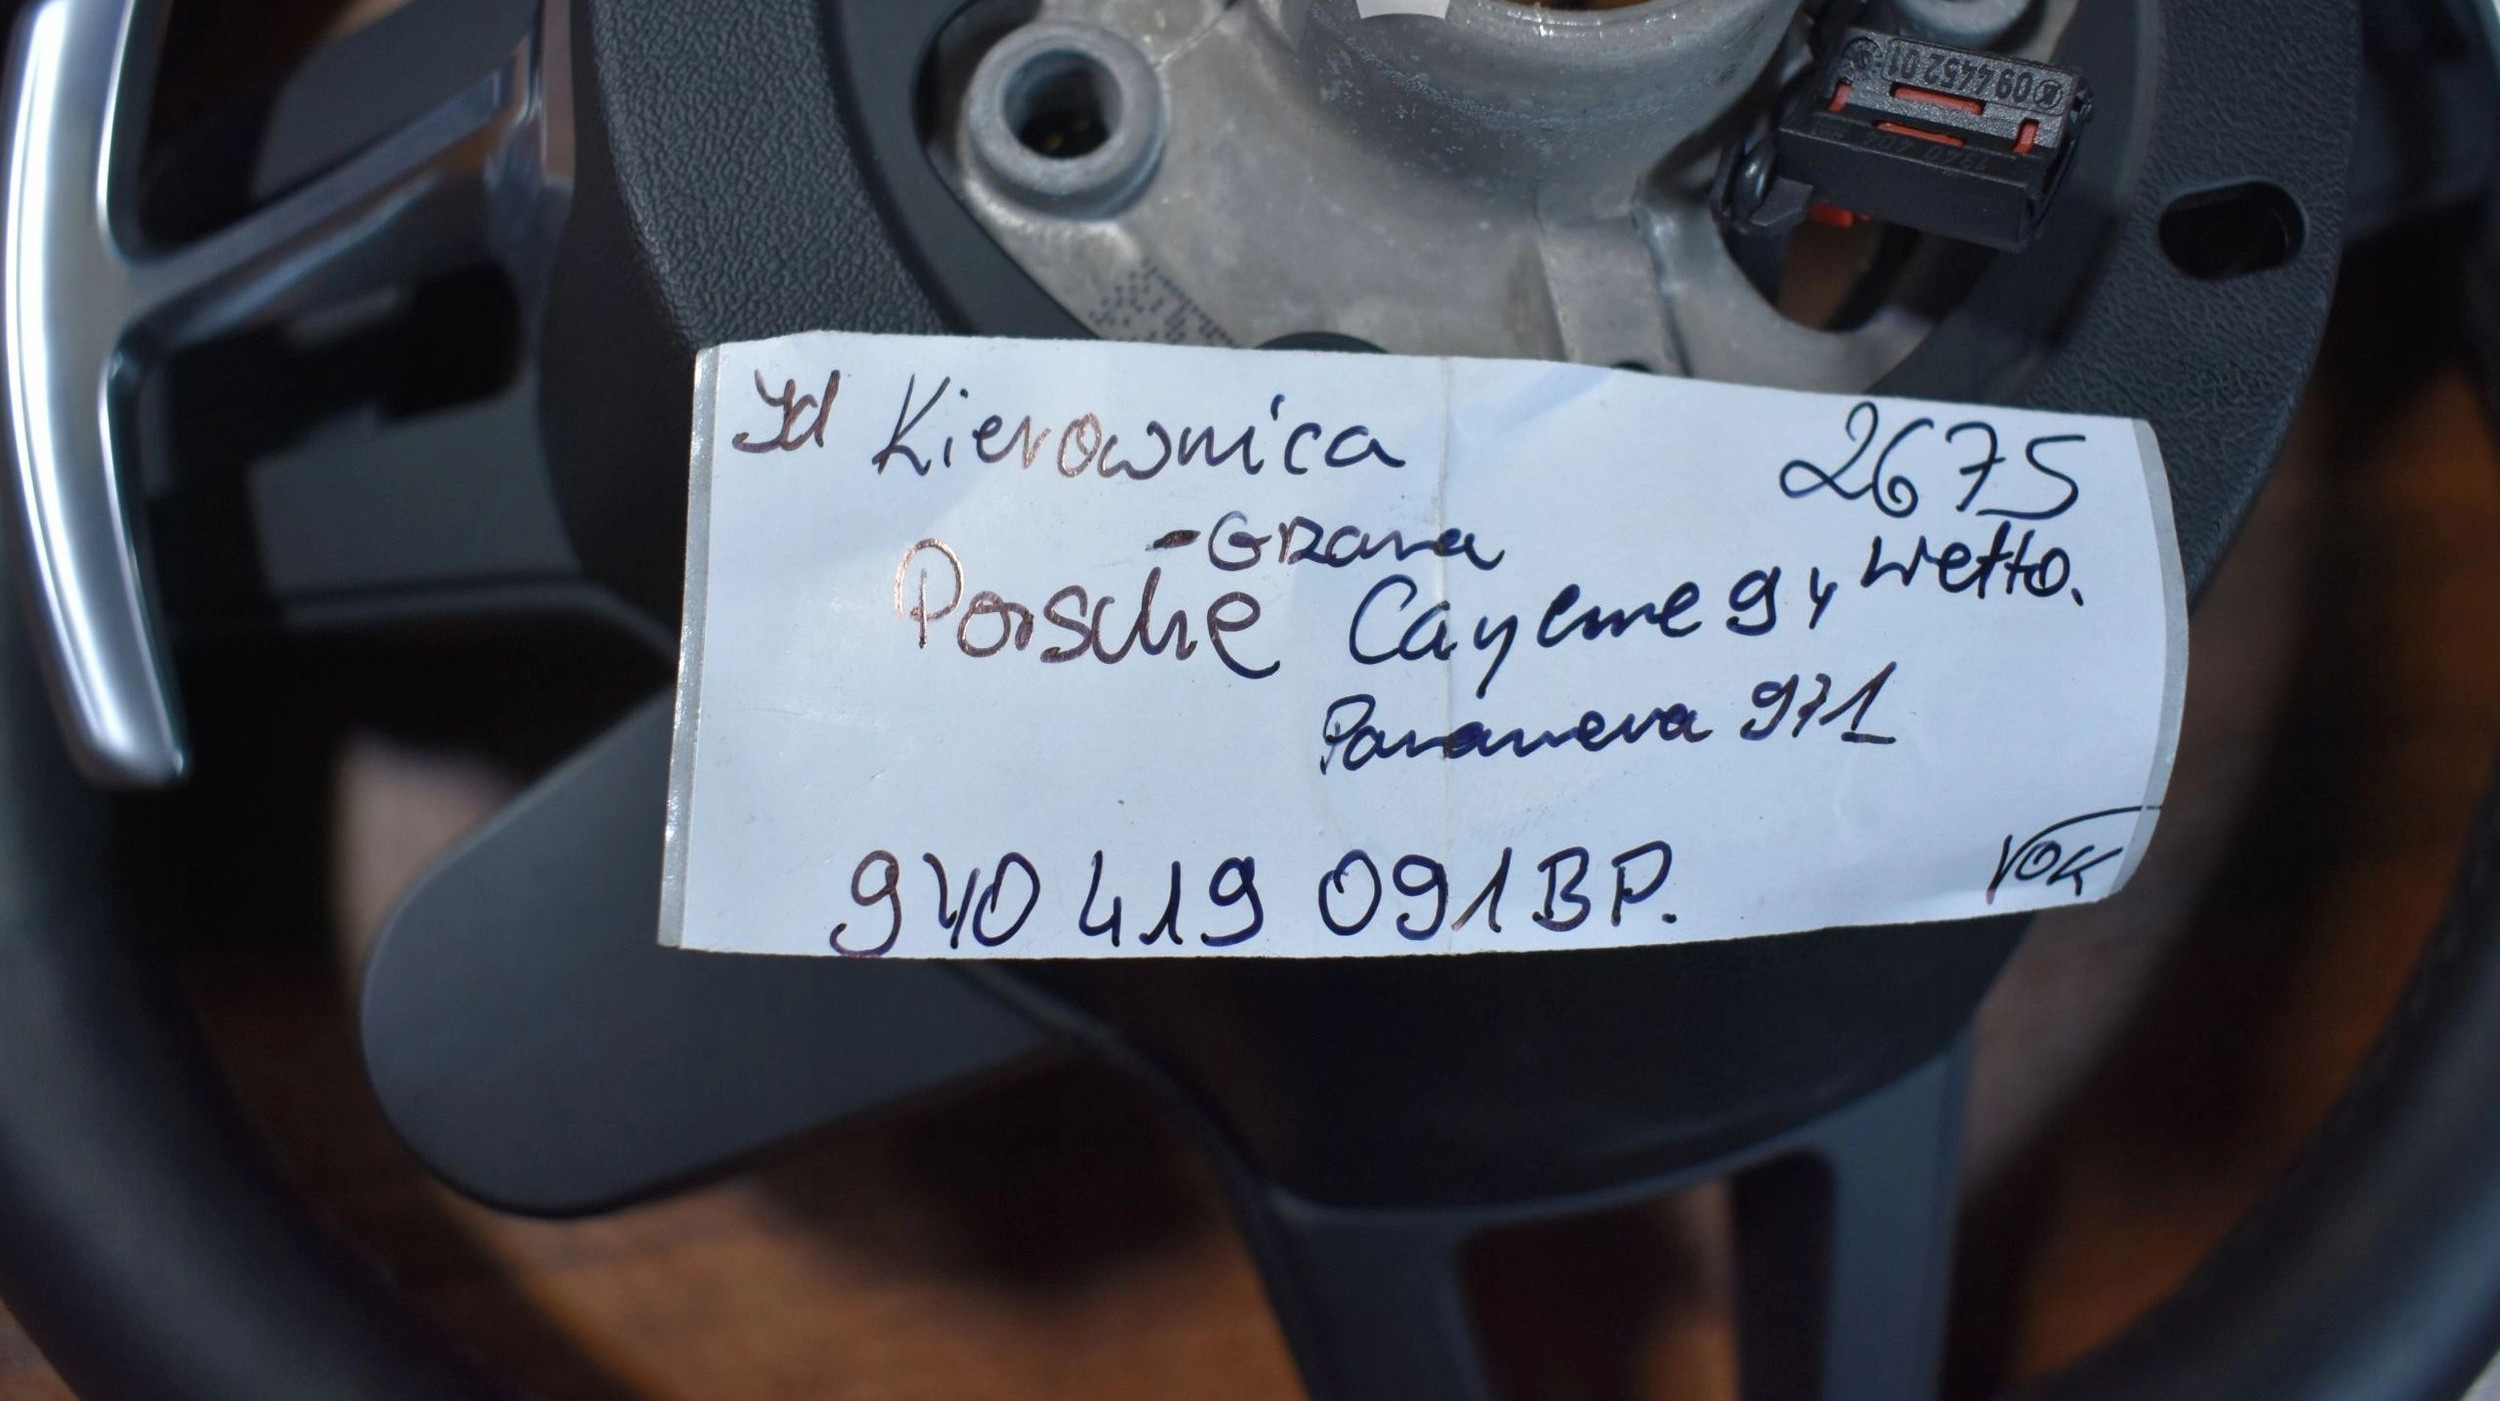 Id Kierownica 2675
-Grzana Netto.
Porsche Cayenne 9y
Panamera 971
9Y0 419 091 BP. VOK
09 4452 01